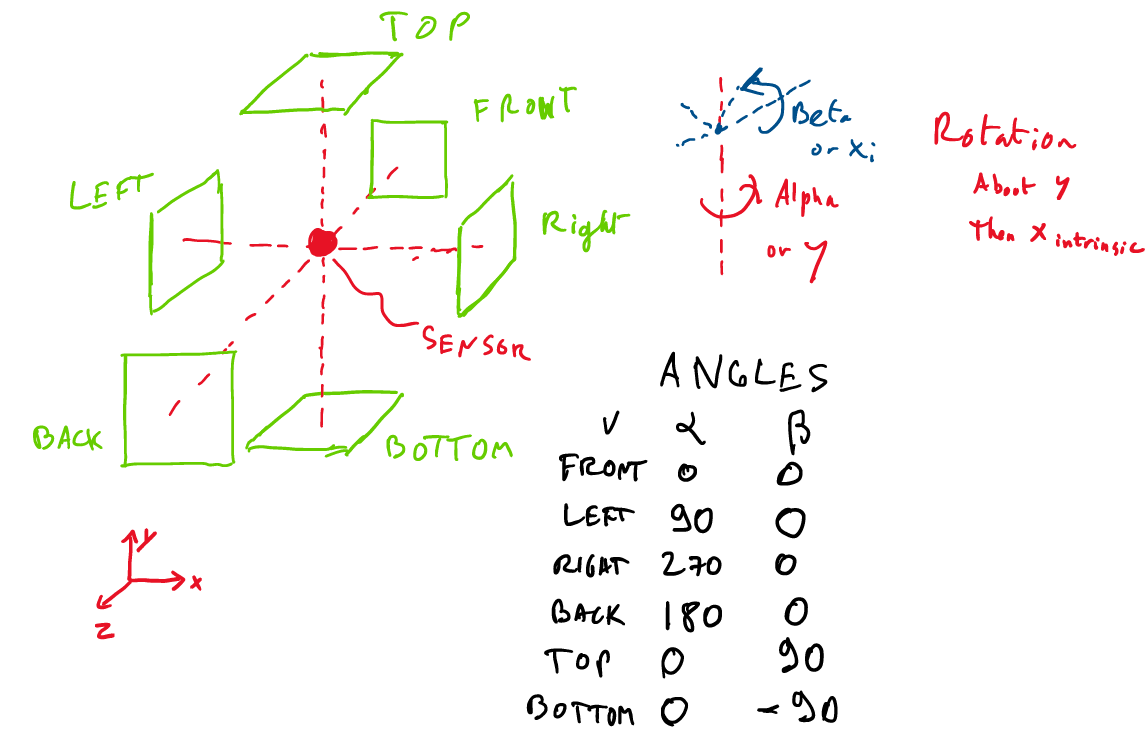 TOP
FRONT
LEFT
Right
SENSOR
BACK
BOTTOM
y
x
z
Beta
or xi
Alpha
or y
Rotation
About y
Then x intrinsic
ANGLES
V α β
FRONT 0 0
LEFT 90 0
RIGHT 270 0
BACK 180 0
TOP 0 90
BOTTOM 0 -90